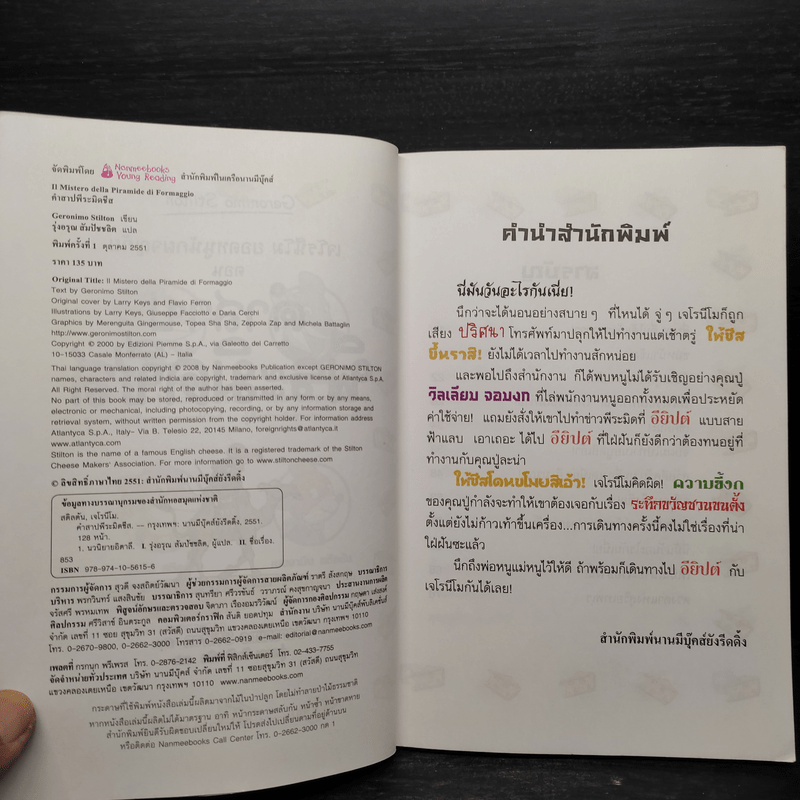 จัดพิมพ์โดย Nanmeebooks Young Reading สำนักพิมพ์ในเครือนานมีบุ๊คส์
Il Mistero della Piramide di Formaggio
คำสาปพีระมิดชีส
Geronimo Stilton เขียน
รุ่งอรุณ สัมปัชชลิต แปล
พิมพ์ครั้งที่ 1 ตุลาคม 2551
ราคา 135 บาท
Original Title: Il Mistero della Piramide di Formaggio
Text by Geronimo Stilton
Original cover by Larry Keys and Flavio Ferron
Illustrations by Larry Keys, Giuseppe Facciotto e Daria Cerchi
Graphics by Merenguita Gingermouse, Topea Sha Sha, Zeppola Zap and Michela Battaglin
http://www.geronimostilton.com
Copyright © 2000 by Edizioni Piemme S.p.A., via Galeotto del Carretto
10-15033 Casale Monferrato (AL) – Italia
Thai language translation copyright © 2008 by Nanmeebooks Publication except GERONIMO STILTON
names, characters and related indicia are copyright, trademark and exclusive license of Atlantyca S.p.A.
All Right Reserved. The moral right of the author has been asserted.
No part of this book may be stored, reproduced or transmitted in any form or by any means,
electronic or mechanical, including photocopying, recording, or by any information storage and
retrieval system, without written permission from the copyright holder. For information address
Atlantyca S.p.A., Italy- Via B. Telesio 22, 20145 Milano, foreignrights@atlantyca.it
www.atlantyca.com
Stilton is the name of a famous English cheese. It is a registered trademark of the Stilton
Cheese Makers' Association. For more information go to www.stiltoncheese.com
© ลิขสิทธิ์ภาษาไทย 2551: สำนักพิมพ์นานมีบุ๊คส์ยังรีดดิ้ง
ข้อมูลทางบรรณานุกรมของสำนักหอสมุดแห่งชาติ
สติลตัน, เจโรนีโม.
คำสาปพีระมิดชีส. — กรุงเทพฯ: นานมีบุ๊คส์ยังรีดดิ้ง, 2551.
128 หน้า.
1. นวนิยายอิตาลี. I. รุ่งอรุณ สัมปัชชลิต, ผู้แปล. II. ชื่อเรื่อง.
853
ISBN 978-974-10-5615-6
กรรมการผู้จัดการ สุวดี จงสถิตย์วัฒนา ผู้ช่วยกรรมการผู้จัดการสายผลิตภัณฑ์ ราตรี สังสกฤษ บรรณาธิการ
บริหาร พรกวินทร์ แสงสินชัย บรรณาธิการ สุนทรียา ศรีวรขันธ์ วราภรณ์ คงสุขกาญจนา ประสานงานการผลิต
จรัสศรี พรหมเทพ พิสูจน์อักษรและตรวจสอบ จิดาภา เรืองอมรวิวัฒน์ ผู้จัดการกองศิลปกรรม กฤษดา
ศิลปกรรม ศรีวิสาข์ อินตระกูล คอมพิวเตอร์กราฟิก สันติ ยอดปทุม สำนักงาน บริษัท นานมีบุ๊คส์พับลิเคชั่นส์
จำกัด เลขที่ 11 ซอยสุขุมวิท 31 (สวัสดี) ถนนสุขุมวิท แขวงคลองเตยเหนือ เขตวัฒนา กรุงเทพฯ 10110
โทร. 0-2670-9800, 0-2662-3000 โทรสาร 0-2662-0919 e-mail: editorial@nanmeebooks.com
เพลตที่ กรกนก พรีเพรส โทร. 0-2876-2142 พิมพ์ที่ ฟิสิกส์เซ็นเตอร์ โทร. 02-433-7755
จัดจำหน่ายทั่วประเทศ บริษัท นานมีบุ๊คส์ จำกัด เลขที่ 11 ซอยสุขุมวิท 31 (สวัสดี) ถนนสุขุมวิท
แขวงคลองเตยเหนือ เขตวัฒนา กรุงเทพฯ 10110 โทร. 0-2662-3000
www.nanmeebooks.com
กระดาษที่ใช้พิมพ์หนังสือเล่มนี้ผลิตมาจากไม้ในป่าปลูก โดยไม่ทำลายป่าไม้ธรรมชาติ
หากหนังสือเล่มนี้ผลิตไม่ได้มาตรฐาน อาทิ หน้ากระดาษสลับกัน หน้าซ้ำ หน้าขาดหาย
สำนักพิมพ์ยินดีรับผิดชอบเปลี่ยนใหม่ให้ โปรดส่งไปเปลี่ยนตามที่อยู่ด้านบน
หรือติดต่อ Nanmeebooks Call Center โทร. 0-2662-3000 กด 1
คำนำสำนักพิมพ์
นี่มันวันอะไรกันเนี่ย!
นึกว่าจะได้นอนอย่างสบาย ๆ ที่ไหนได้ จู่ ๆ เจโรนีโมก็ถูก
เสียง ปริศนา โทรศัพท์มาปลุกให้ไปทำงานแต่เช้าตรู่ ให้ชีส
ขึ้นราสิ! ยังไม่ได้เวลาไปทำงานสักหน่อย
และพอไปถึงสำนักงาน ก็ได้พบหนูไม่ได้รับเชิญอย่างคุณปู่
วิลเลียม จอมงก ที่ไล่พนักงานหนูออกทั้งหมดเพื่อประหยัด
ค่าใช้จ่าย! แถมยังสั่งให้เขาไปทำข่าวพีระมิดที่ อียิปต์ แบบสาย
ฟ้าแลบ เอาเถอะ ได้ไป อียิปต์ ที่ใฝ่ฝันก็ยังดีกว่าต้องทนอยู่ที่
ทำงานกับคุณปู่ละน่า
ให้ชีสโดนขโมยสิเอ้า! เจโรนีโมคิดผิด! ความขี้งก
ของคุณปู่กำลังจะทำให้เขาต้องเจอกับเรื่อง ระทึกขวัญชวนขนตั้ง
ตั้งแต่ยังไม่ก้าวเท้าขึ้นเครื่อง...การเดินทางครั้งนี้คงไม่ใช่เรื่องที่น่า
ใฝ่ฝันซะแล้ว
นึกถึงพ่อหนูแม่หนูไว้ให้ดี ถ้าพร้อมก็เดินทางไป อียิปต์ กับ
เจโรนีโมกันได้เลย!
สำนักพิมพ์นานมีบุ๊คส์ยังรีดดิ้ง